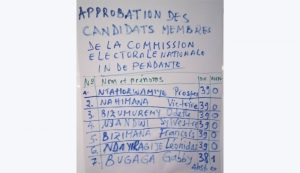 APPROBATION DES
CANDIDATS MEMBRES
DE LA COMMISSION
ELECTORALE NATIONALE
INDEPENDANTE
No Nom et prénoms Oui Non
1. NTAHORWAMIYE Prosper 39 0
2. NAHIMANA Victoire 39 0
3. BIZUMUREMY Odette 39 0
4. NJANDWI Sylvestre 39 0
5. BIZIMANA François 39 0
6. NDAYIRAGIJE Léonidas 39 0
7. BUGAGA Gabby 38 1
Abst.